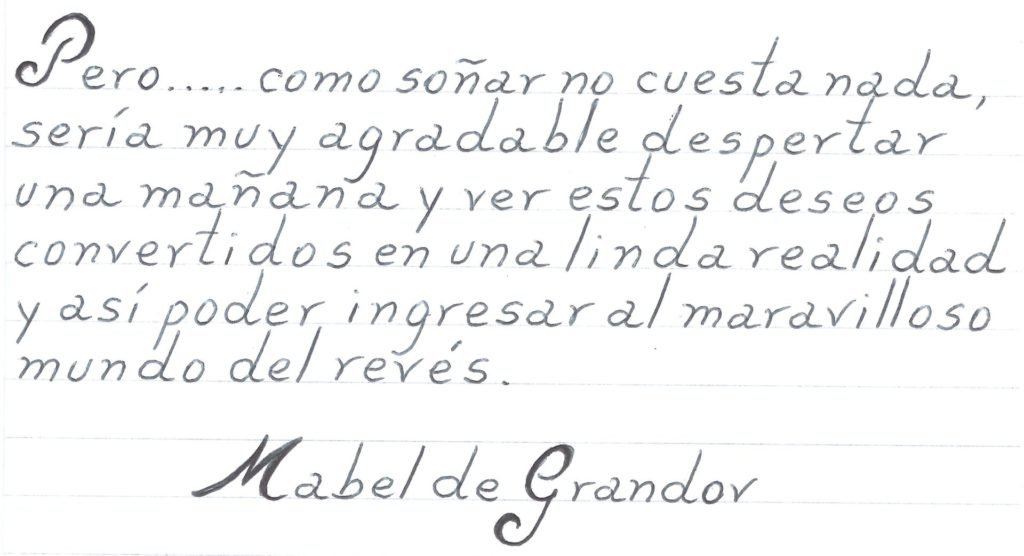 Pero..... como soñar no cuesta nada,
sería muy agradable despertar
una mañana y ver estos deseos
convertidos en una linda realidad
y así poder ingresar al maravilloso
mundo del revés.
Mabel de Grandov